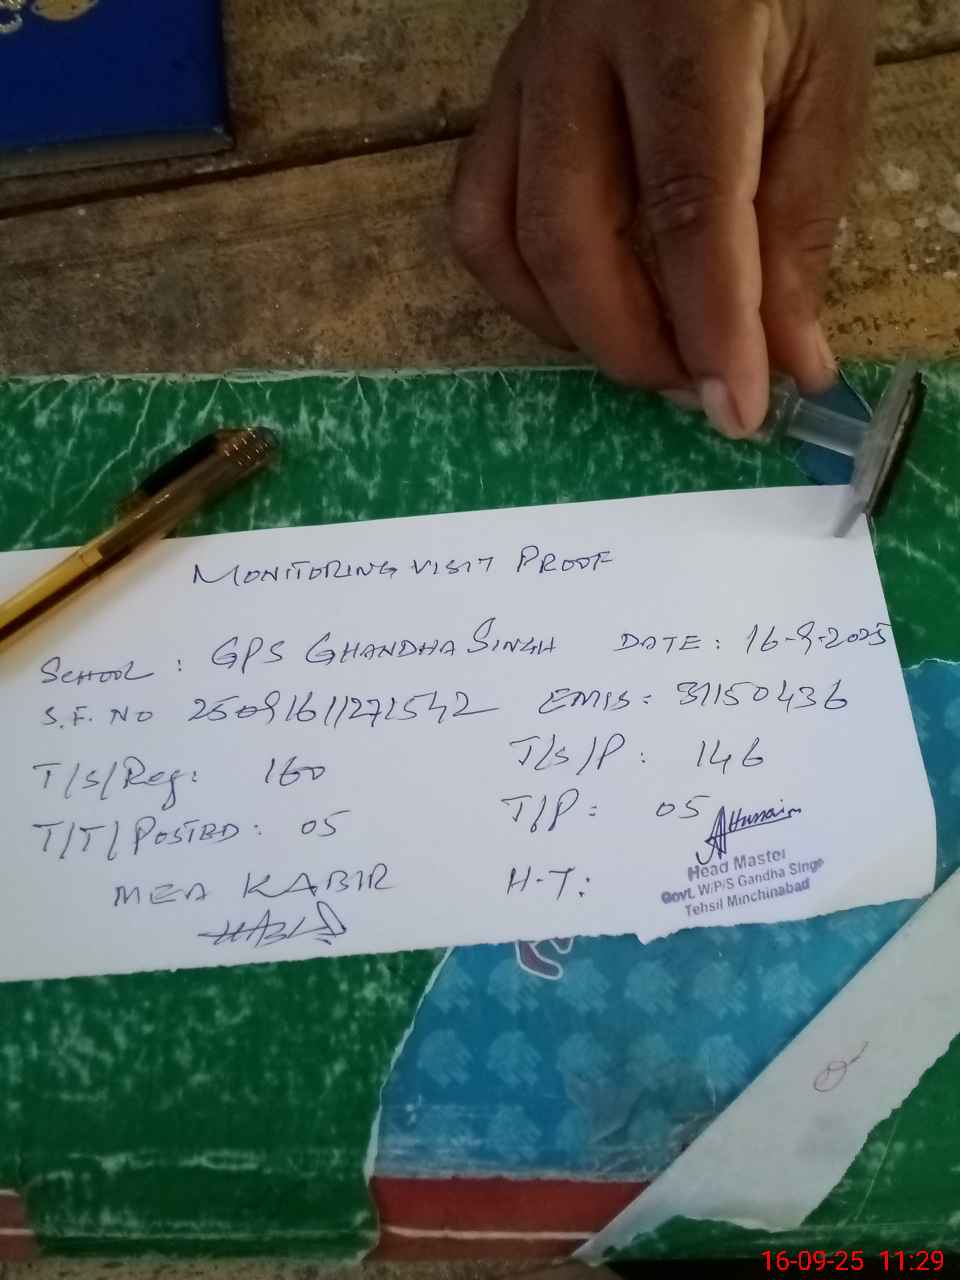 MONITORING VISIT PROOF
SCHOOL : GPS GHANDHA SINGH DATE : 16-9-2025
S.F. NO 25091611271542 EMIS : 31150436
T/S/Reg: 160 T/S/P : 146
T/T/POSTED : 05 T/P : 05
AHussain
MEA KABIR H.T:
Head Master
Govt. W/P/S Gandha Singh
Tehsil Minchinabad
16-09-25 11:29